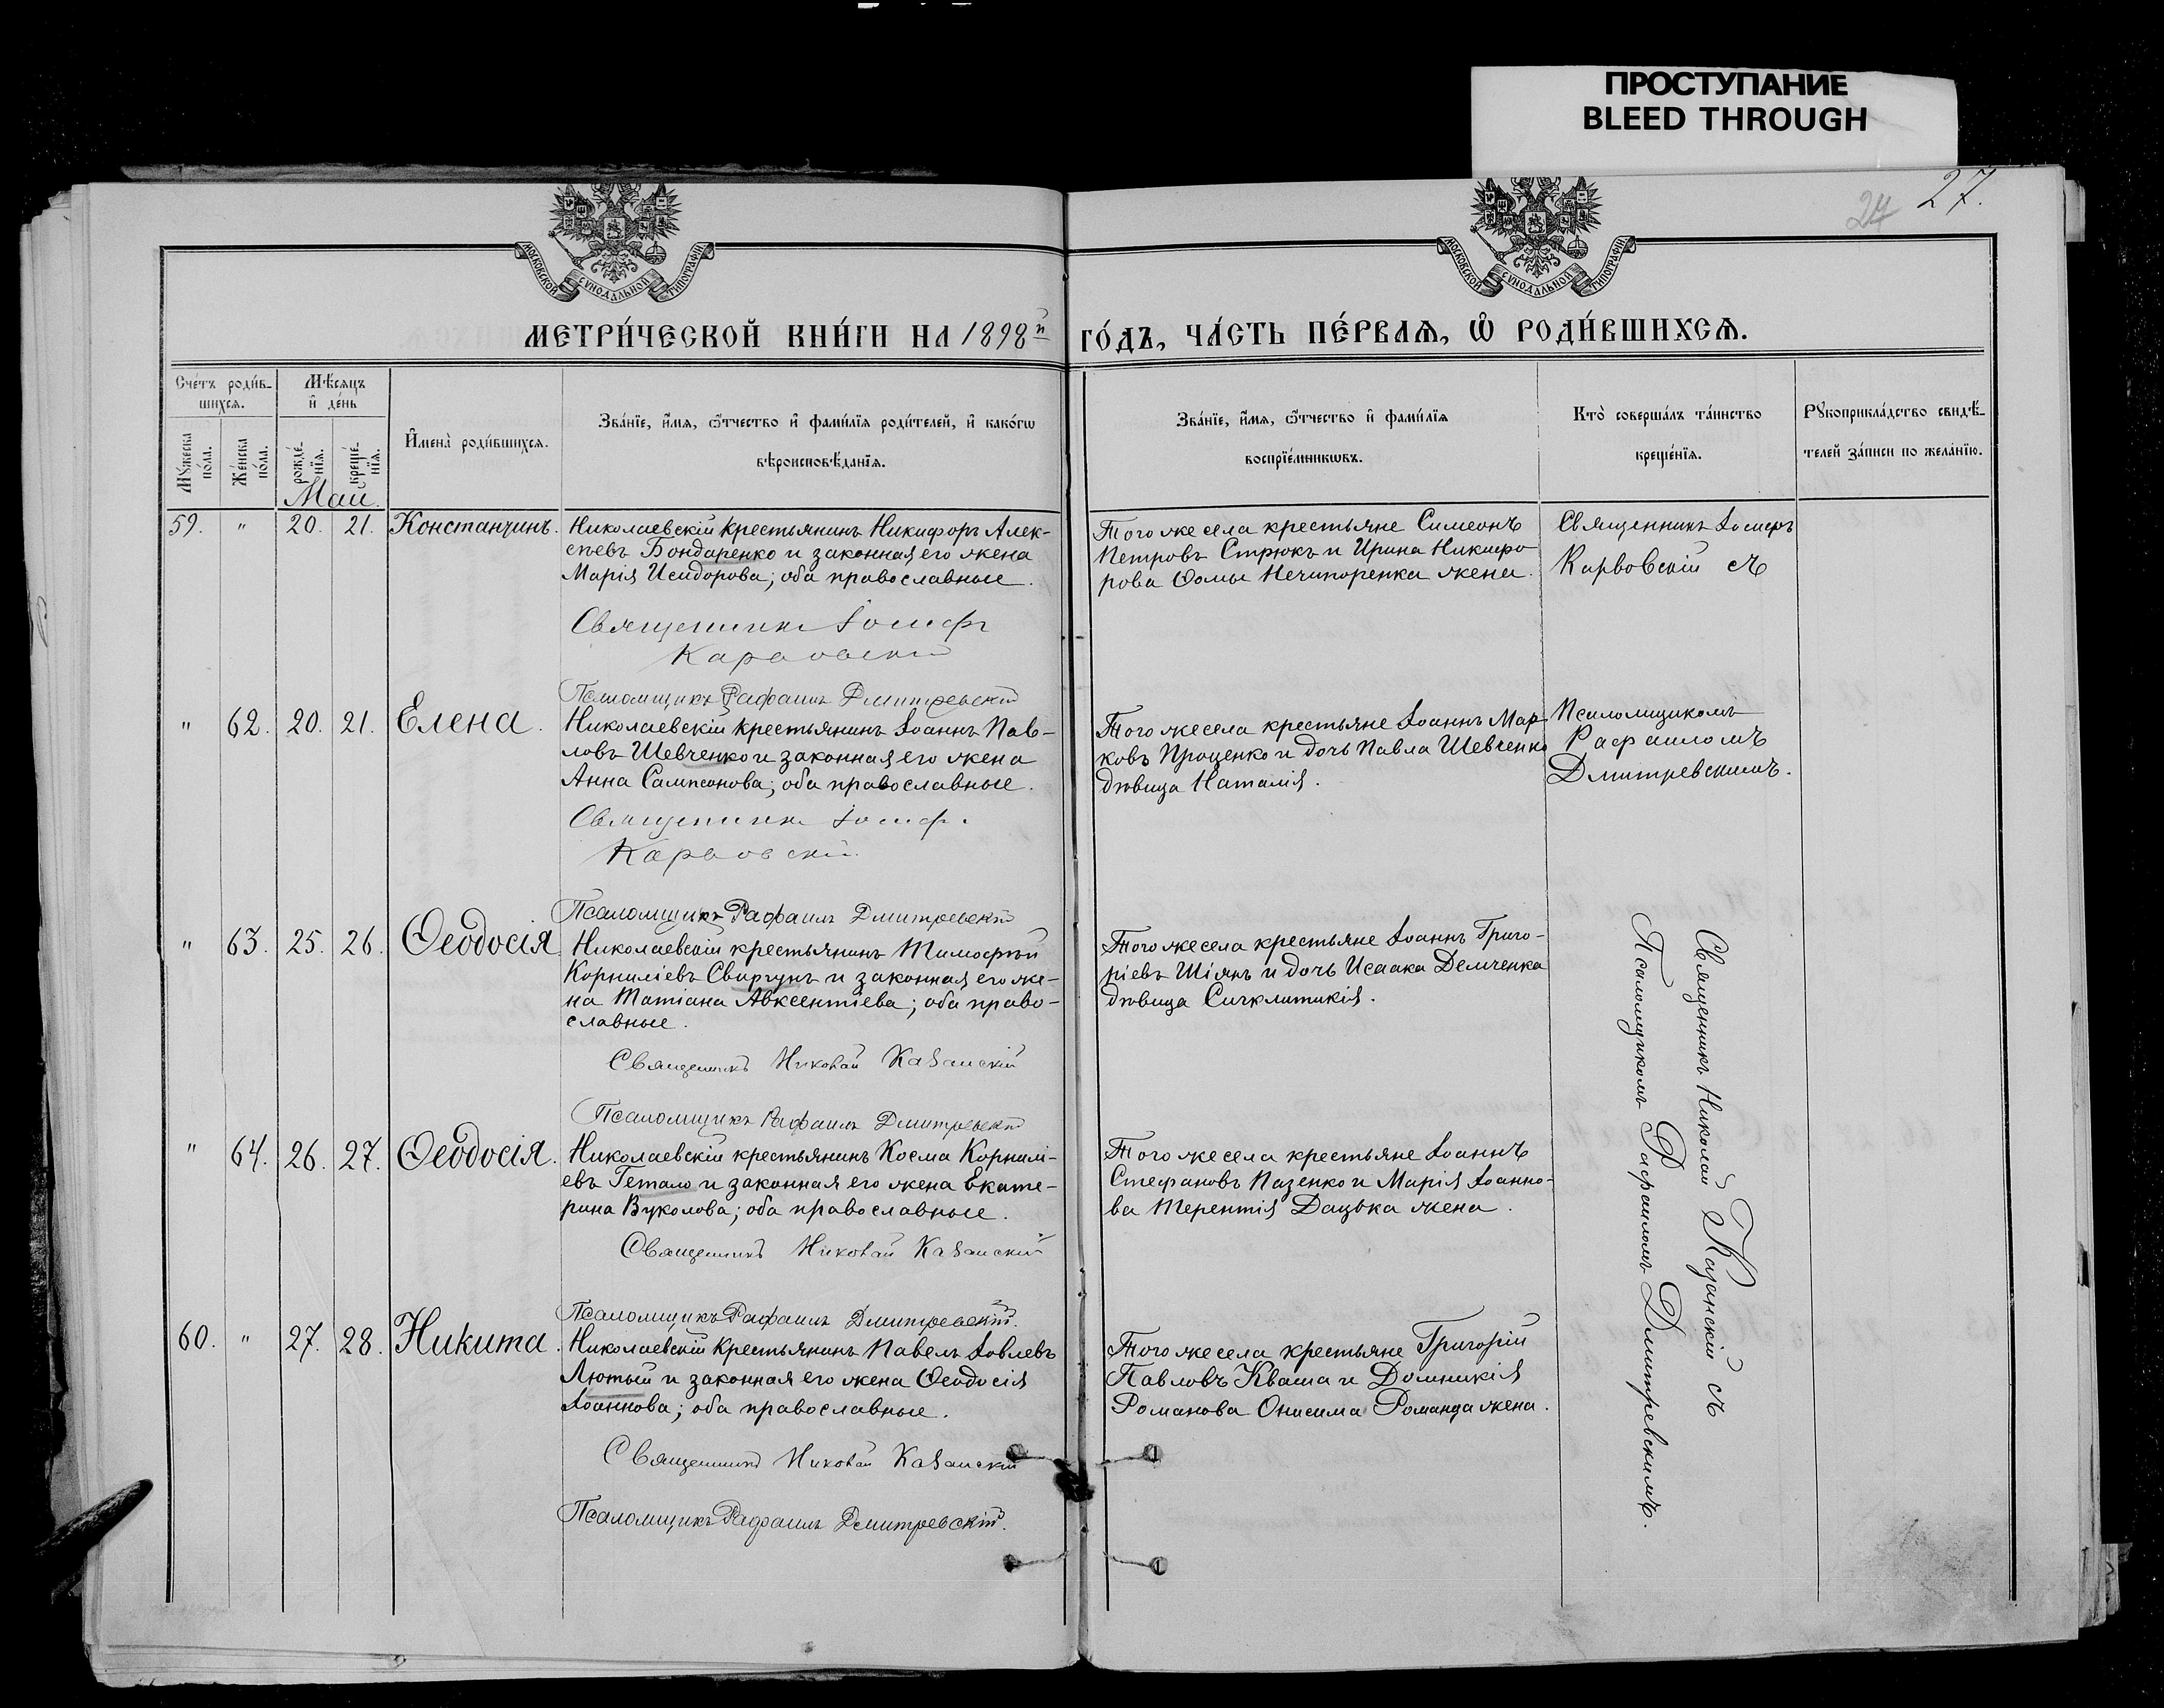 ПРОСТУПАНИЕ
BLEED THROUGH
27
27.
МОСКОВСКОЙ СѴНОДАЛЬНОЙ ТИПОГРАФІИ
МОСКОВСКОЙ СѴНОДАЛЬНОЙ ТИПОГРАФІИ
МЕТРИ́ЧЕСКОЙ КНИ́ГИ НА 1898й ГО́ДЪ, ЧА́СТЬ ПЕ́РВАѦ, Ѽ РОДИ́ВШИХСѦ.
Сче́тъ роди́в-
шихсѧ.
Мѣ́сѧцъ
и҆ де́нь
Мꙋ́жеска
по́ла.
Же́нска
по́ла.
рожде́-
нїѧ.
креще́-
нїѧ.
И҆мена̀ роди́вшихсѧ.
Зва́нїе, и҆́мѧ, ѻ҆́тчество и҆ фамѝлїѧ роди́телей, и҆ како́гѡ
вѣроисповѣ́данїѧ.
Зва́нїе, и҆́мѧ, ѻ҆́тчество и҆ фамѝлїѧ
воспрїе́мникѡвъ.
Кто̀ соверша́лъ та́инство
креще́нїѧ.
Рꙋкоприкла́дство свидѣ́-
телей за́писи по жела́нїю.
Май.
59. " 20. 21. Константинъ.
Николаевскій крестьянинъ Никифоръ Алек-
сѣевъ Бондаренко и законная его жена
Марія Исидорова; оба православные.
Священникъ Іосифъ
Карвовскій
Псаломщикъ Рафаилъ Дмитревскій
Того же села крестьяне Симеонъ
Петровъ Стрюкъ и Ирина Никифо
рова Ѳомы Нечипоренка жена.
Священникъ Іосифъ
Карвовскій съ
" 62. 20. 21. Елена.
Николаевскій крестьянинъ Іоаннъ Пав-
ловъ Шевченко и законная его жена
Анна Сампсонова; оба православные.
Священникъ Іосиф.
Карвовскій.
Псаломщикъ Рафаилъ Дмитревскій
Того же села крестьяне Іоаннъ Мар-
ковъ Проценко и дочь Павла Шевченко
дѣвица Наталія.
Псаломщикомъ
Рафаиломъ
Дмитревскимъ.
" 63. 25. 26. Ѳеодосія
Николаевскій крестьянинъ Тимофей
Корниліевъ Свиргунъ и законная его же-
на Татіана Авксентіева; оба право-
славные.
Священникъ Николай Казанскій
Псаломщикъ Рафаилъ Дмитревскій
Того же села крестьяне Іоаннъ Григо-
ріевъ Шіянъ и дочь Исаака Демченка
дѣвица Сигклитикія.
Священникъ Николай Казанскій съ
Псаломщикомъ Рафаиломъ Дмитревскимъ.
" 64. 26. 27. Ѳеодосія.
Николаевскій крестьянинъ Косма Корнилі-
евъ Гетало и законная его жена Екате-
рина Вуколова; оба православные.
Священникъ Николай Казанскій
Псаломщикъ Рафаилъ Дмитревскій.
Того же села крестьяне Іоаннъ
Стефановъ Пазенко и Марія Іоанно-
ва Терентія Дацька жена.
60. " 27. 28. Никита.
Николаевскій крестьянинъ Павелъ Іовлевъ
Лютый и законная его жена Ѳеодосія
Іоаннова; оба православные.
Священникъ Николай Казанскій
Псаломщикъ Рафаилъ Дмитревскій.
Того же села крестьяне Григорій
Павловъ Кваша и Домникія
Романова Онисима Романда жена.